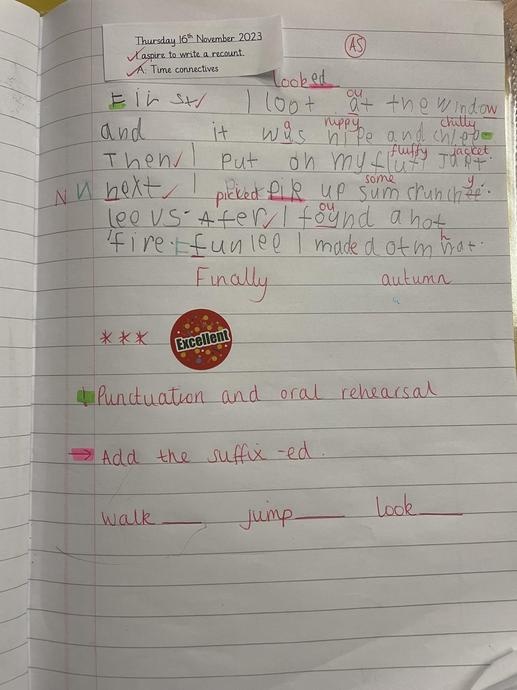 Thursday 16th November 2023
I aspire to write a recount.
A: Time connectives
AS
looked
First I loot at the window
ou
and it was nipe and chlep
a nippy chilly
Then I put on my
fluffy jacket
N N next I pik up sum crunchee
picked some y
leevs. After I found a hot
ou
fire. funlee I made a otm hat.
h
Finally autumn
*** Excellent
! Punctuation and oral rehearsal
→ Add the suffix -ed.
walk ____ jump ____ look ____